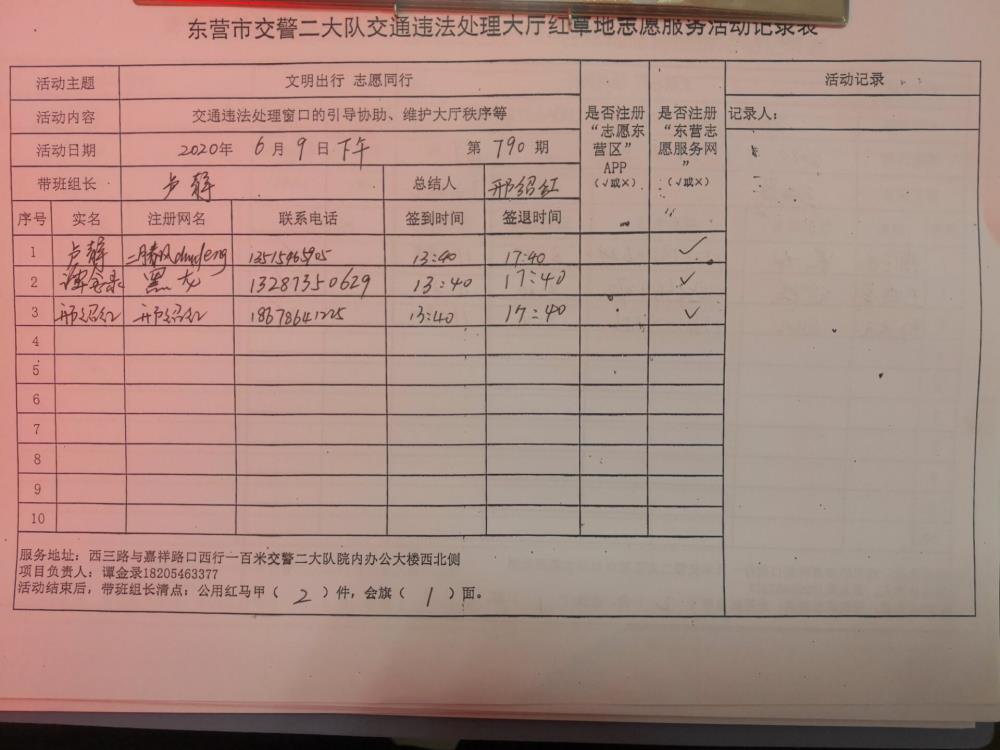 东营市交警二大队交通违法处理大厅红草地志愿服务活动记录表
活动主题 文明出行 志愿同行 是否注册“志愿东营区”APP（√或×） 是否注册“东营志愿服务网”（√或×） 活动记录
活动内容 交通违法处理窗口的引导协助、维护大厅秩序等 记录人：
活动日期 2020年 6月 9日 下午 第 790 期
带班组长 卢静 总结人 邢绍红
序号 实名 注册网名 联系电话 签到时间 签退时间
1 卢静 13:40 17:40 ✓
2 谭金录 黑大 13287350629 13:40 17:40 ✓
3 邢绍红 邢绍红 13:40 17:40 ✓
4
5
6
7
8
9
10
服务地址：西三路与嘉祥路口西行一百米交警二大队院内办公大楼西北侧
项目负责人：谭金录18205463377
活动结束后，带班组长清点：公用红马甲（ 2 ）件，会旗（ 1 ）面。